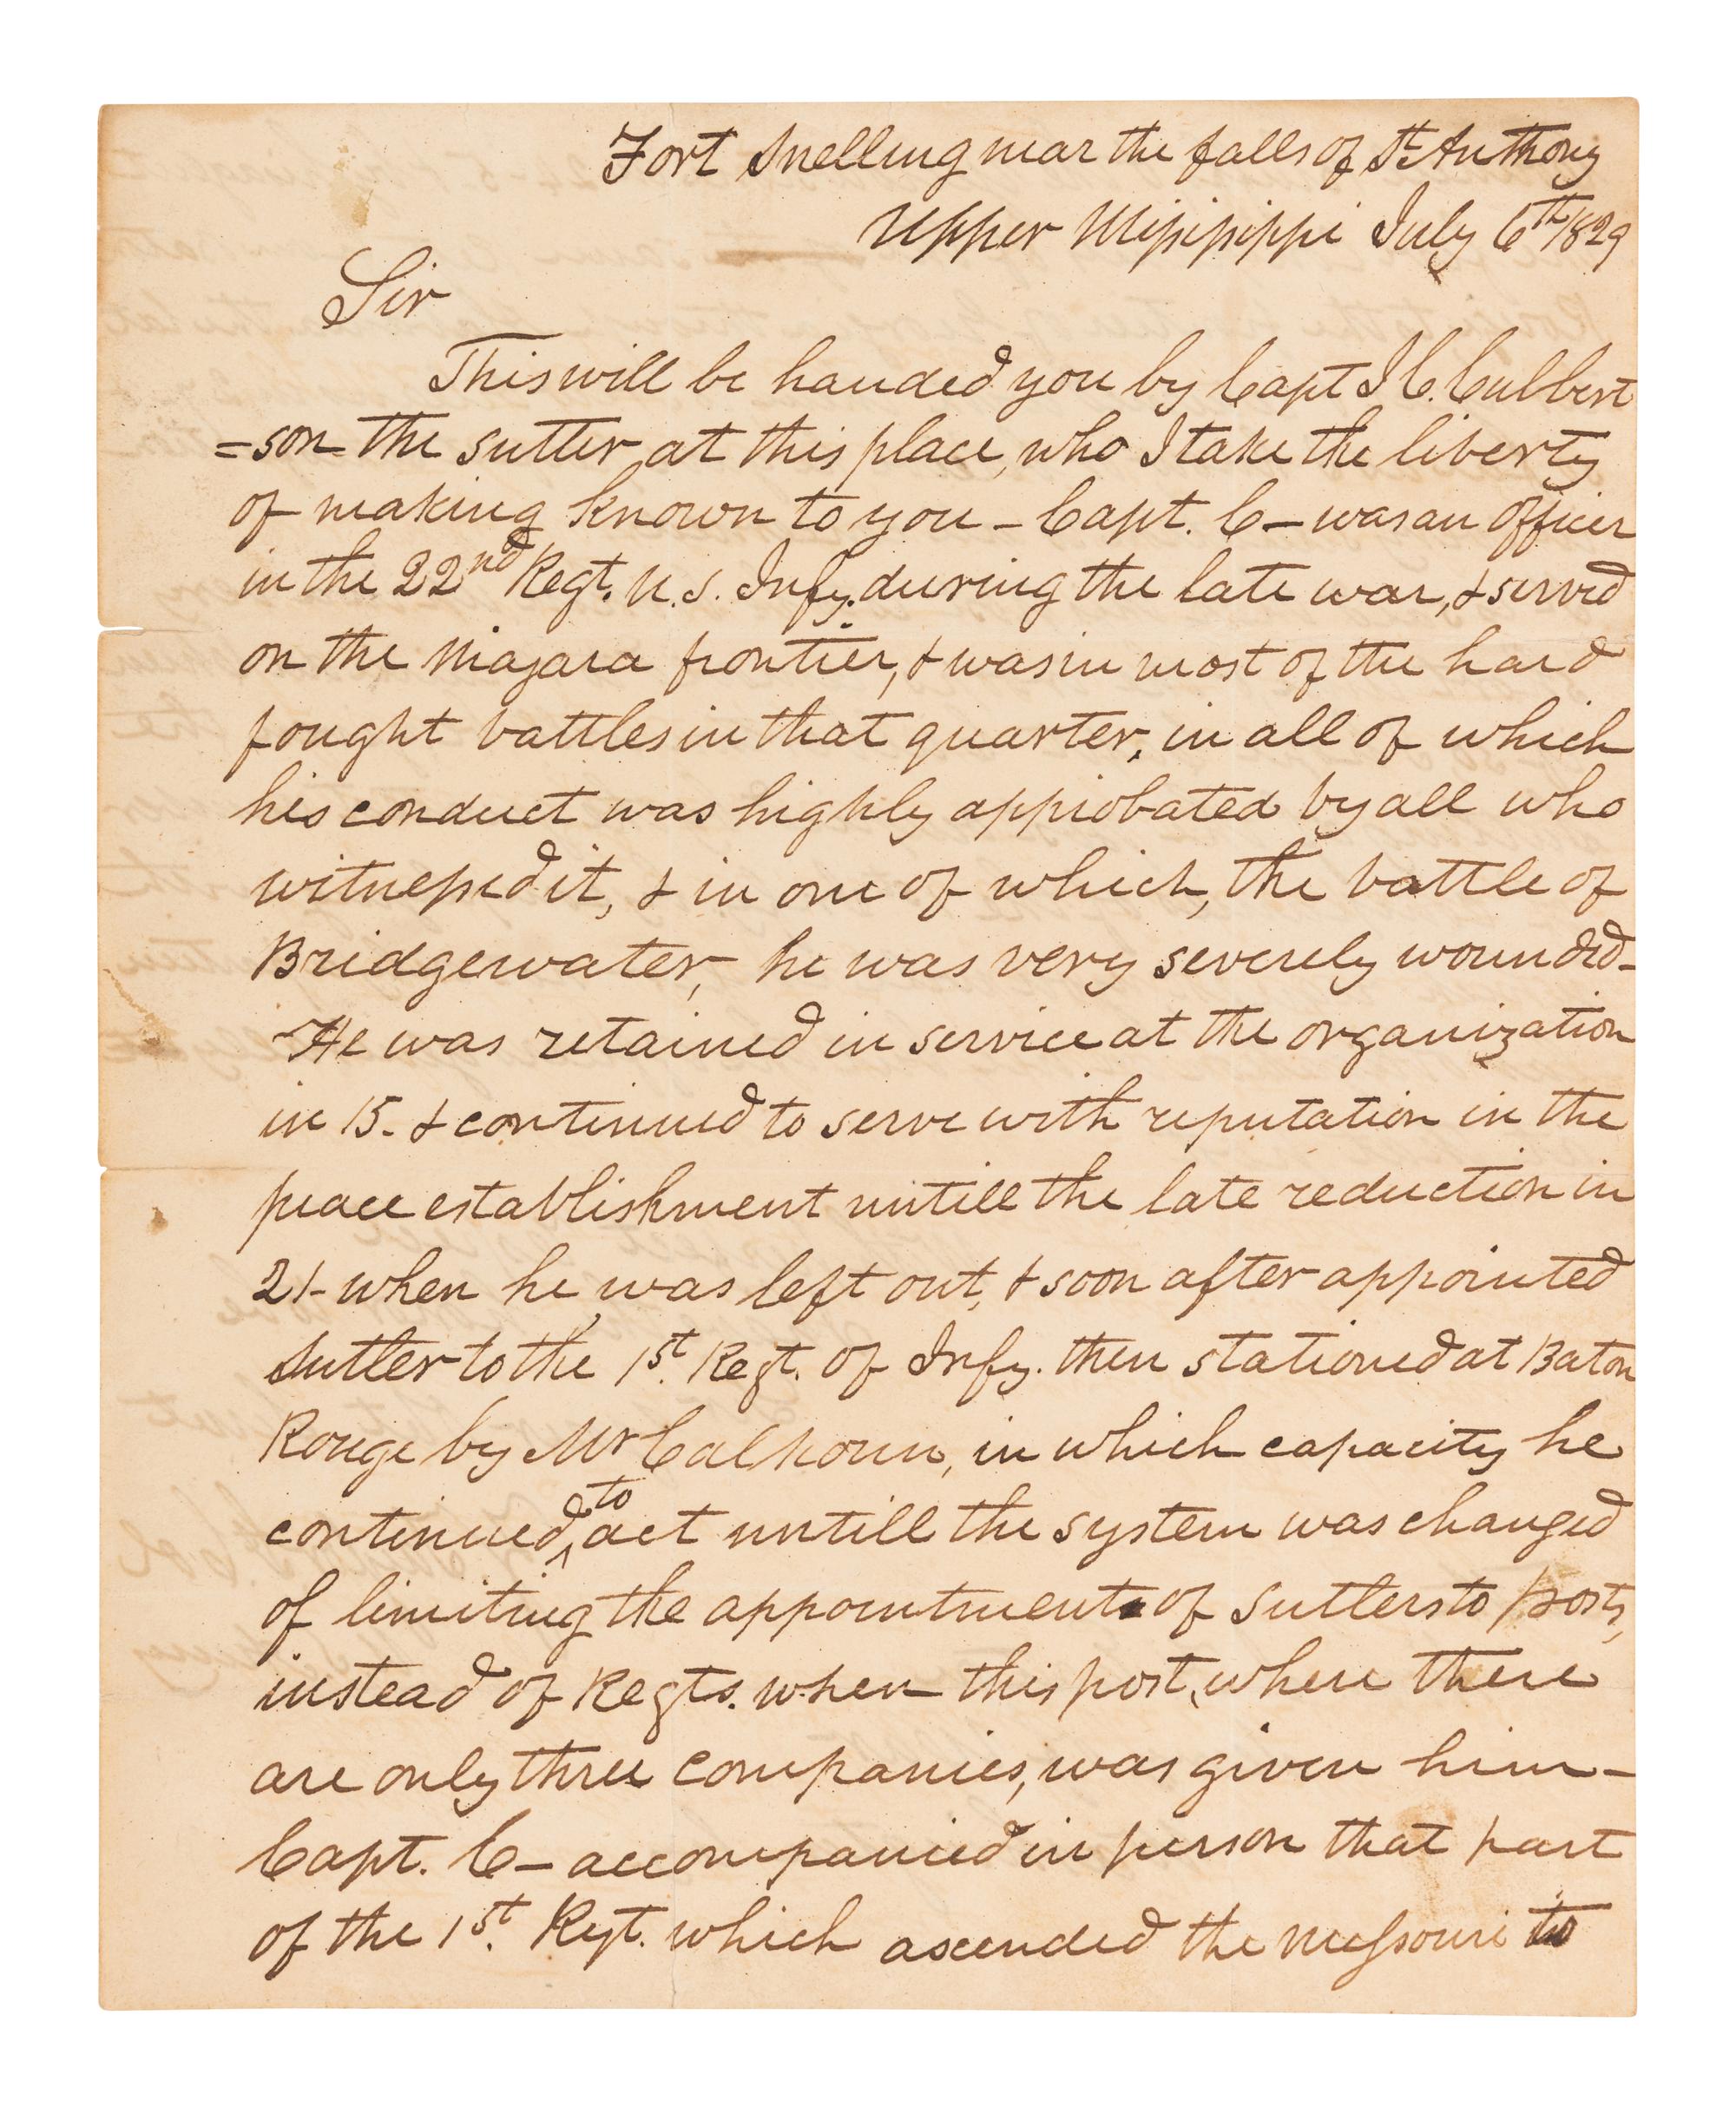 Fort Snelling near the falls of St. Anthony
Upper Missisippi July 6th 1829
Sir
This will be handed you by Capt J C. Culbert
=son the sutler at this place, who I take the liberty
of making known to you – Capt. C – was an officer
in the 22nd Regt. U. S. Infy. during the late war, & served
on the Niagara frontier, & was in most of the hard
fought battles in that quarter, in all of which
his conduct was highly approbated by all who
witnessed it, & in one of which, the battle of
Bridgewater, he was very severely wounded –
He was retained in service at the organization
in 15. & continued to serve with reputation in the
peace establishment untill the late reduction in
21 – when he was left out, & soon after appointed
Sutler to the 1st. Regt. of Infy. then stationed at Baton
Rouge by Mr Calhoun, in which capacity he
continued to act untill the system was changed
of limiting the appointment of Sutlers to posts,
instead of Regts. when this post, where there
are only three companies, was given him –
Capt. C – accompanied in person that part
of the 1st. Regt. which ascended the Missouri to